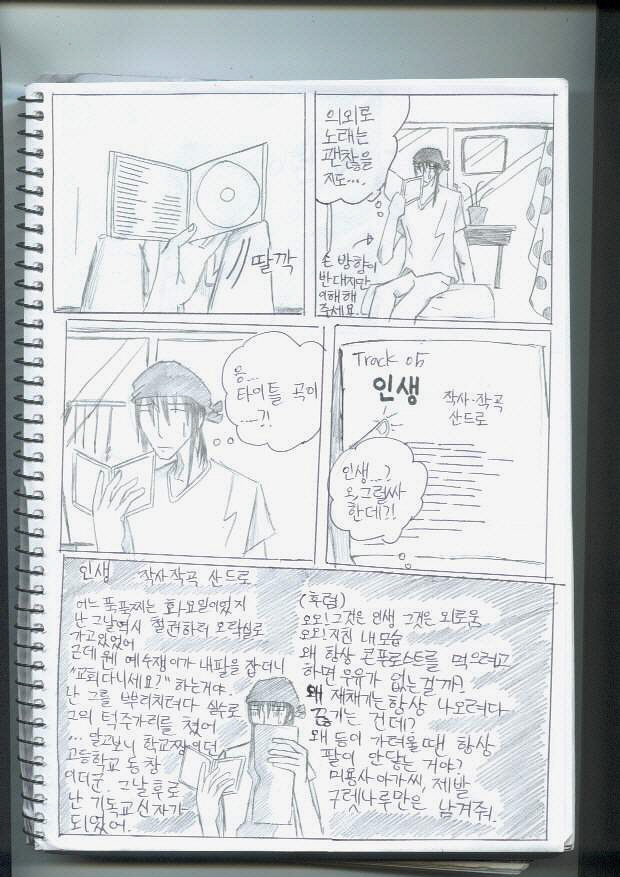 딸깍
의외로
노래는
괜찮을
지도....
손 방향이
반대지만
이해해
주세요
응...
타이틀 곡이
....?!
Track 05
인생
작사·작곡
산드로
인생...?
오,그럴싸
한데?!
인생 작사작곡 산드로
어느 푹푹찌는 화요일이었지
난 그날역시 철권하러 오락실로
가고있었어
근데 웬 예수쟁이가 내팔을 잡더니
"교회다니세요?" 하는거야.
난 그를 뿌리치려다 실수로
그의 턱주가리를 쳤어
... 알고보니 학교짱이던
고등학교 동창
이더군. 그날후로
난 기독교신자가
되었어.
(후렴)
오오!그것은 인생 그것은 외로움
오오!지친 내모습
왜 항상 콘푸로스트를 먹으려고
하면 우유가 없는걸까?
왜 재채기는 항상 나오려다
끊기는 건데?
왜 등이 가려울때 항상
팔이 안닿는 거야?
미용사아가씨, 제발
구렛나루만은 남겨줘.